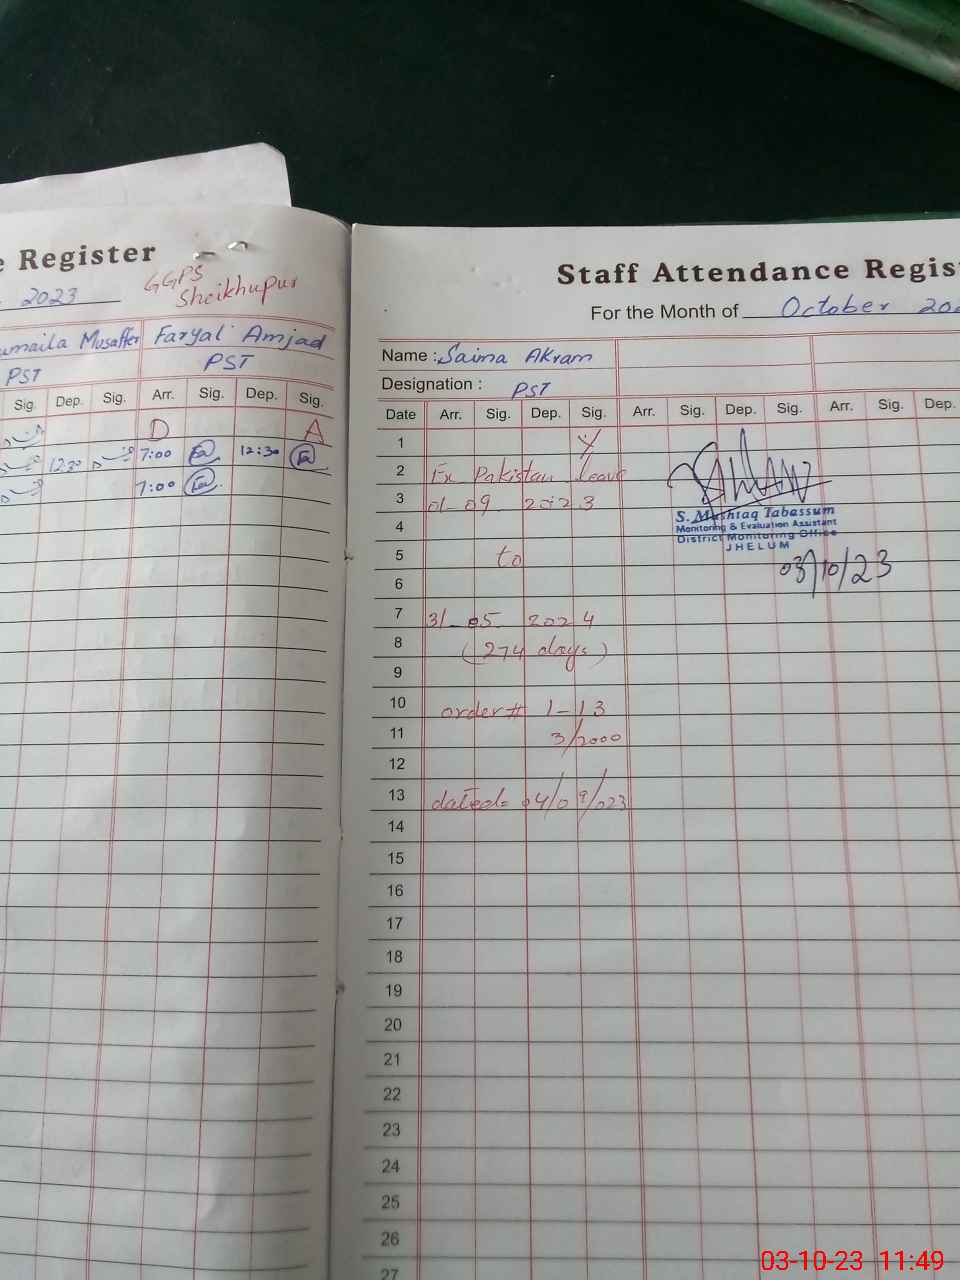 e Register
2023
GGPS
Sheikhupur
umaila Musaffer
Faryal Amjad
PST
PST
Sig. Dep. Sig. Arr. Sig. Dep. Sig.
D A
12:30 7:00 12:30
7:00
Staff Attendance Regis
For the Month of October 202
Name : Saima Akram
Designation : PST
Date Arr. Sig. Dep. Sig. Arr. Sig. Dep. Sig. Arr. Sig. Dep.
1
2 Ex Pakistan leave
3 01-09 2023
4
5 to
6
7 31-05 2024
8 (274 days)
9
10 order# 1-13
11 3/2000
12
13 dated= 04/09/023
14
15
16
17
18
19
20
21
22
23
24
25
26
27
S. Mushtaq Tabassum
Monitoring & Evaluation Assistant
District Monitoring Office
JHELUM
03/10/23
03-10-23 11:49